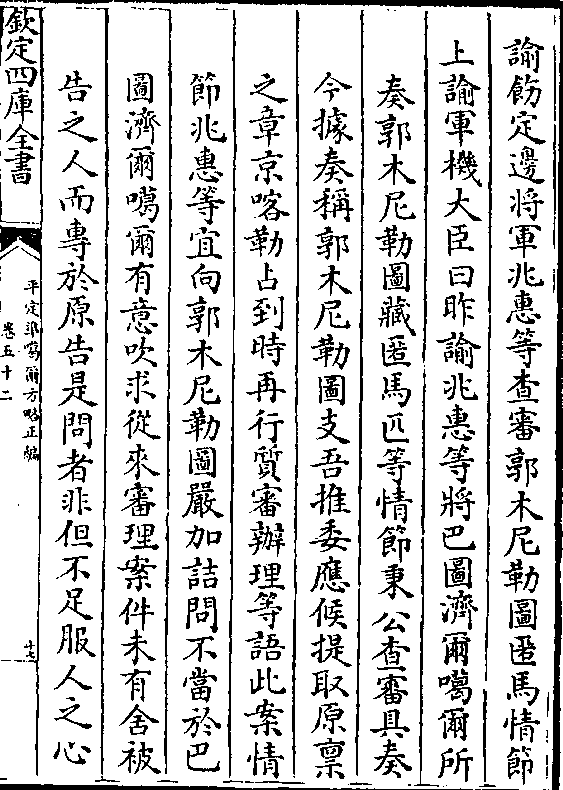 諭飭定邊將軍兆惠等查審郭木尼勒圖匿馬情節
上諭軍機大臣曰昨諭兆惠等將巴圖濟爾噶爾所
奏郭木尼勒圖藏匿馬匹等情節秉公查審具奏
今據奏稱郭木尼勒圖支吾推委應候提取原稟
之章京喀勒占到時再行質審辦理等語此案情
節兆惠等宜向郭木尼勒圖嚴加詰問不當於巴
圖濟爾噶爾有意吹求從來審理案件未有舍被
告之人而專於原告是問者非但不足服人之心
欽定四庫全書
平定準噶爾方略正編
卷五十二
十七